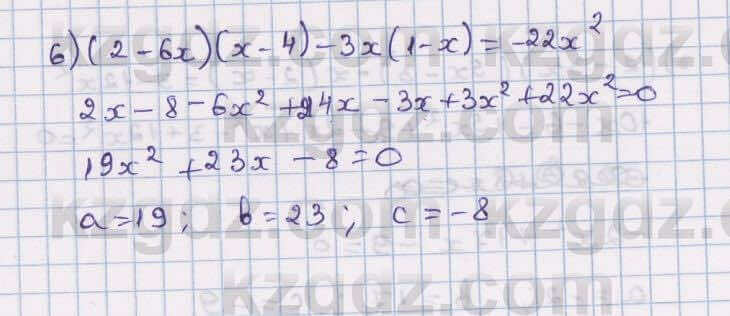 б) (2 - 6x)(x - 4) - 3x(1 - x) = -22x²
2x - 8 - 6x² + 24x - 3x + 3x² + 22x² = 0
19x² + 23x - 8 = 0
a = 19; b = 23; c = -8
kzgdz.com kzgdz.com
kzgdz.com
kzgdz.com kzgdz.com
kzgdz.com